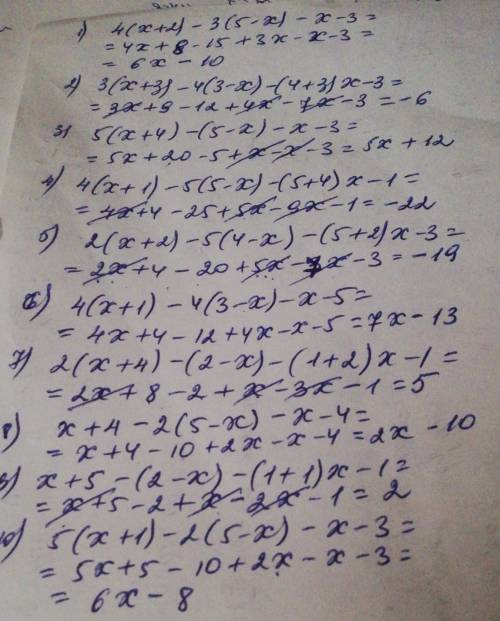 1) 4(x+2)-3(5-x)-x-3=
=4x+8-15+3x-x-3=
=6x-10
2) 3(x+3)-4(3-x)-(4+3)x-3=
=3x+9-12+4x-7x-3=-6
3) 5(x+4)-(5-x)-x-3=
=5x+20-5+x-x-3=5x+12
4) 4(x+1)-5(5-x)-(5+4)x-1=
=4x+4-25+5x-9x-1=-22
5) 2(x+2)-5(4-x)-(5+2)x-3=
=2x+4-20+5x-7x-3=-19
6) 4(x+1)-4(3-x)-x-5=
=4x+4-12+4x-x-5=7x-13
7) 2(x+4)-(2-x)-(1+2)x-1=
=2x+8-2+x-3x-1=5
8) x+4-2(5-x)-x-4=
=x+4-10+2x-x-4=2x-10
9) x+5-(2-x)-(1+1)x-1=
=x+5-2+x-2x-1=2
10) 5(x+1)-2(5-x)-x-3=
=5x+5-10+2x-x-3=
=6x-8